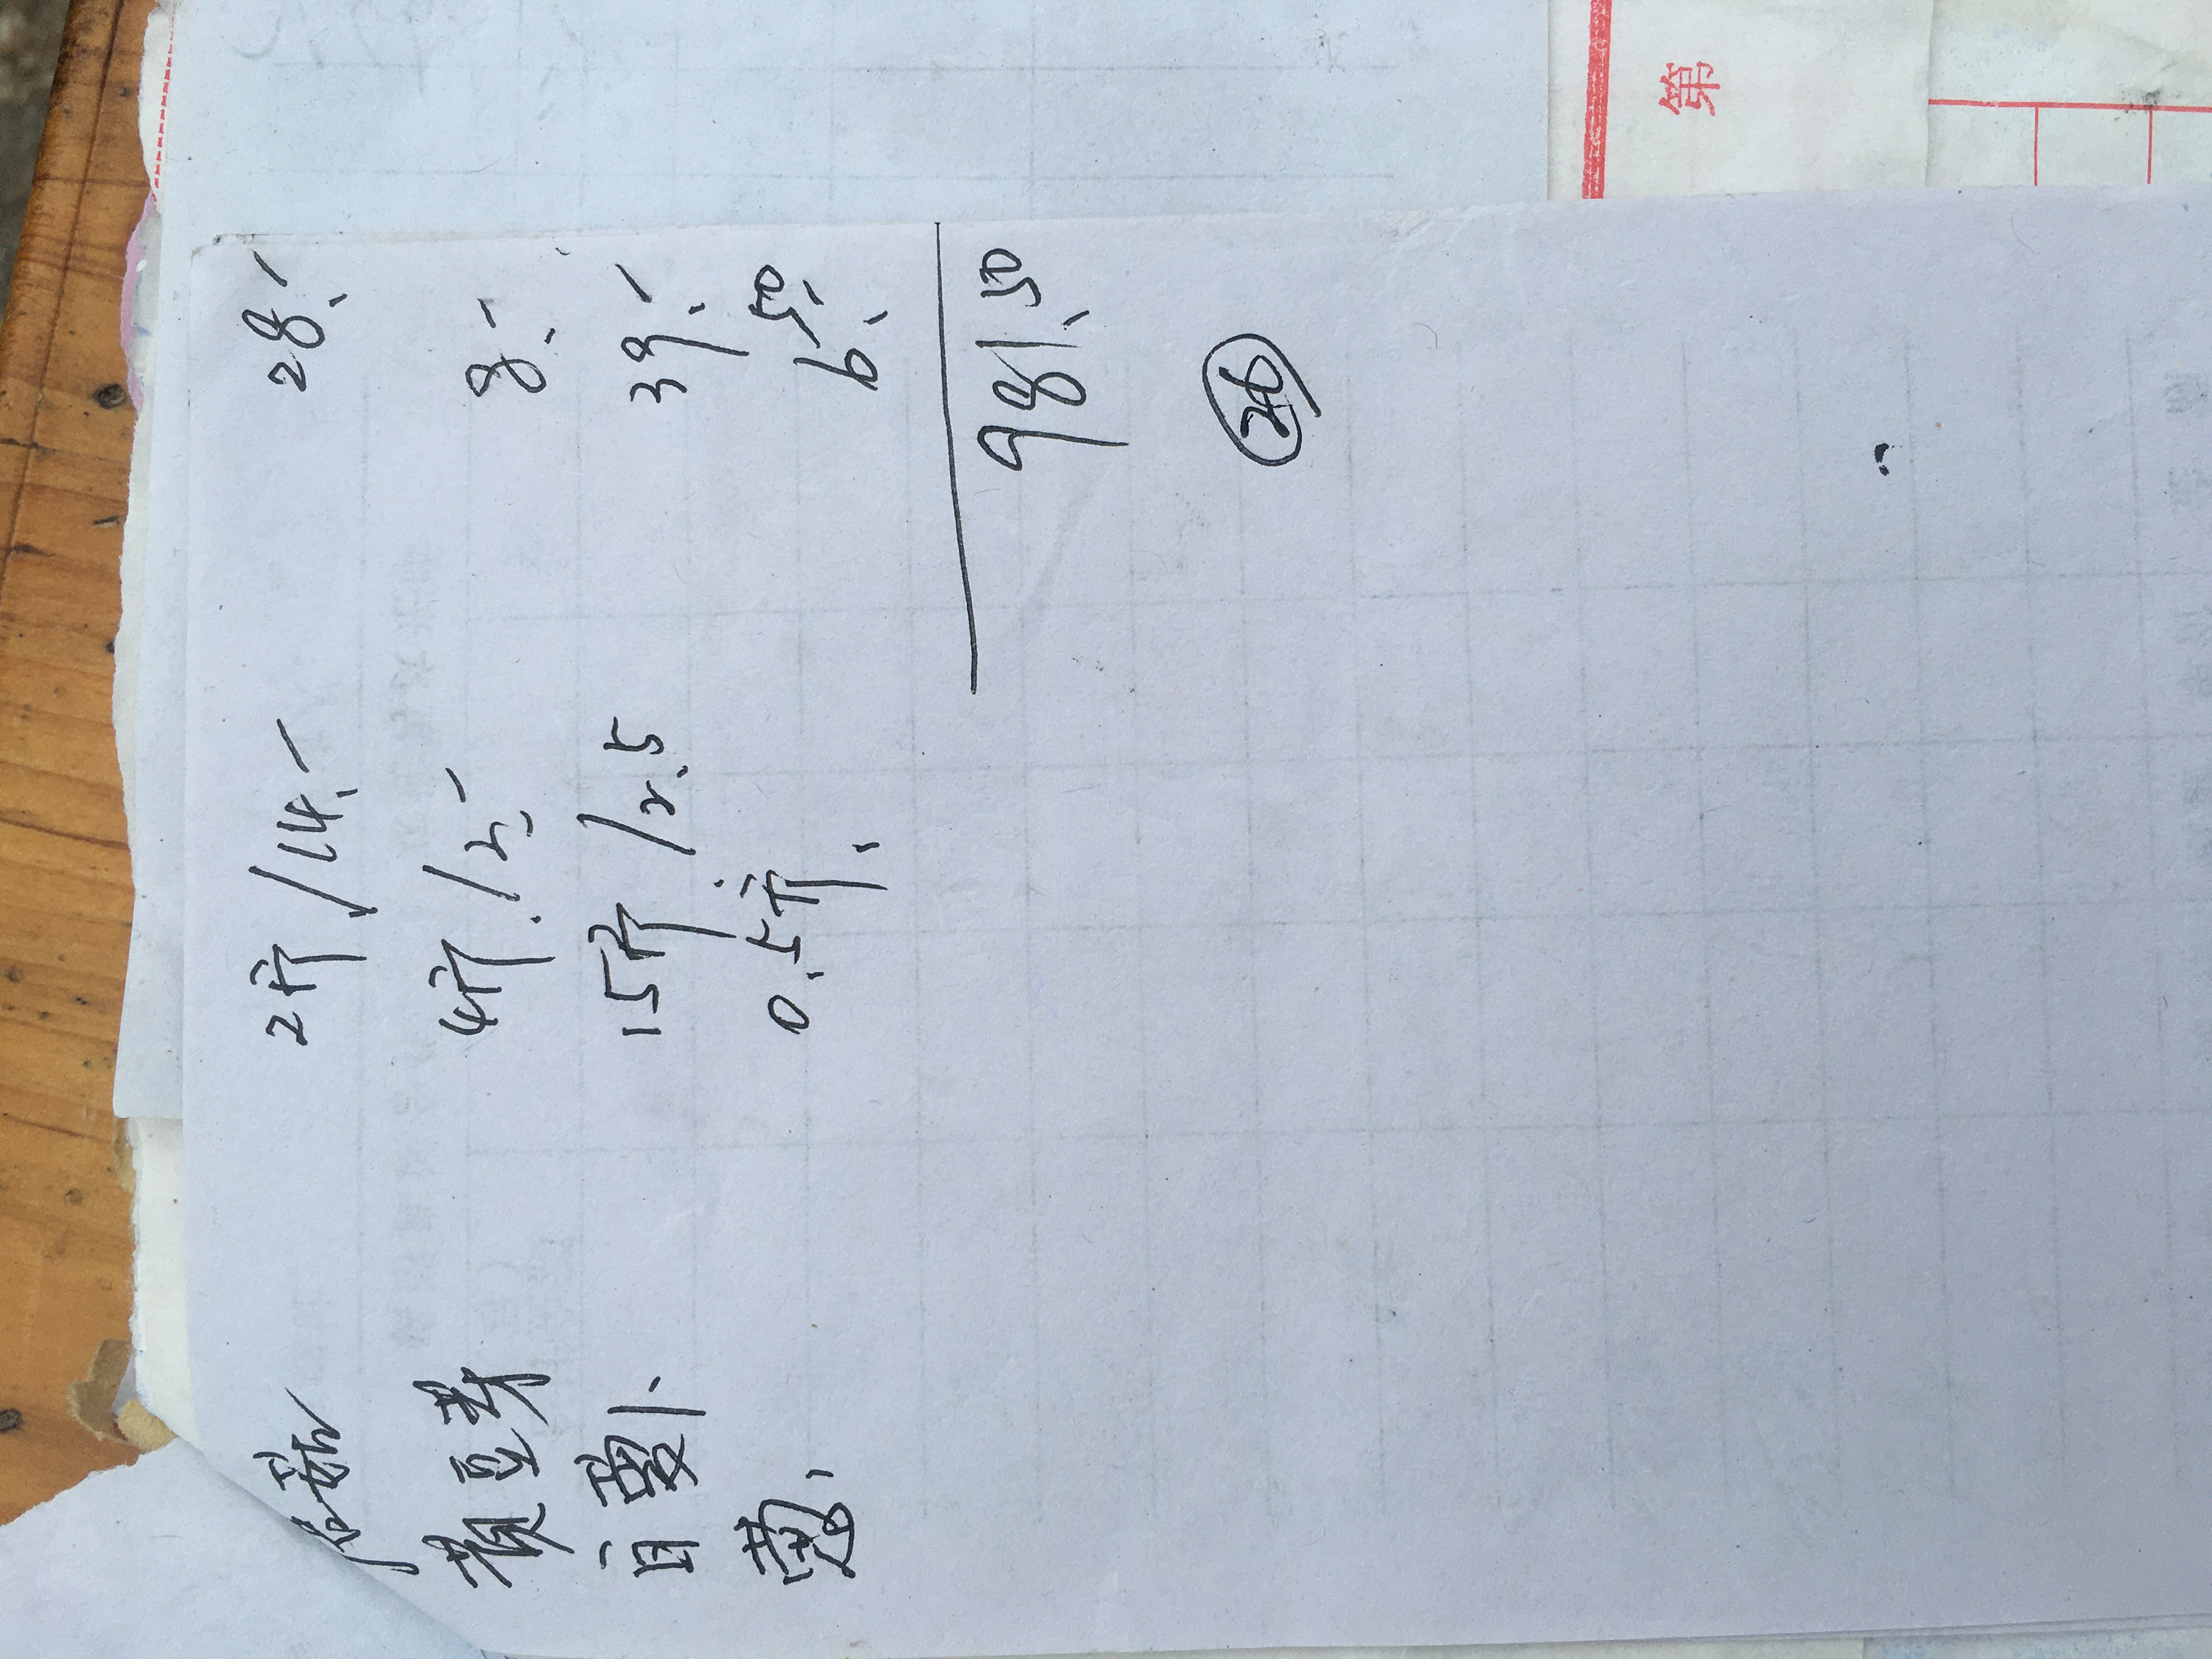 菇 2斤/14.- 28.-
黄豆芽 4斤./2.- 8.-
白萝卜 15斤./2.5 39.-
葱. 0.5斤. 6.50
981.50
26
第